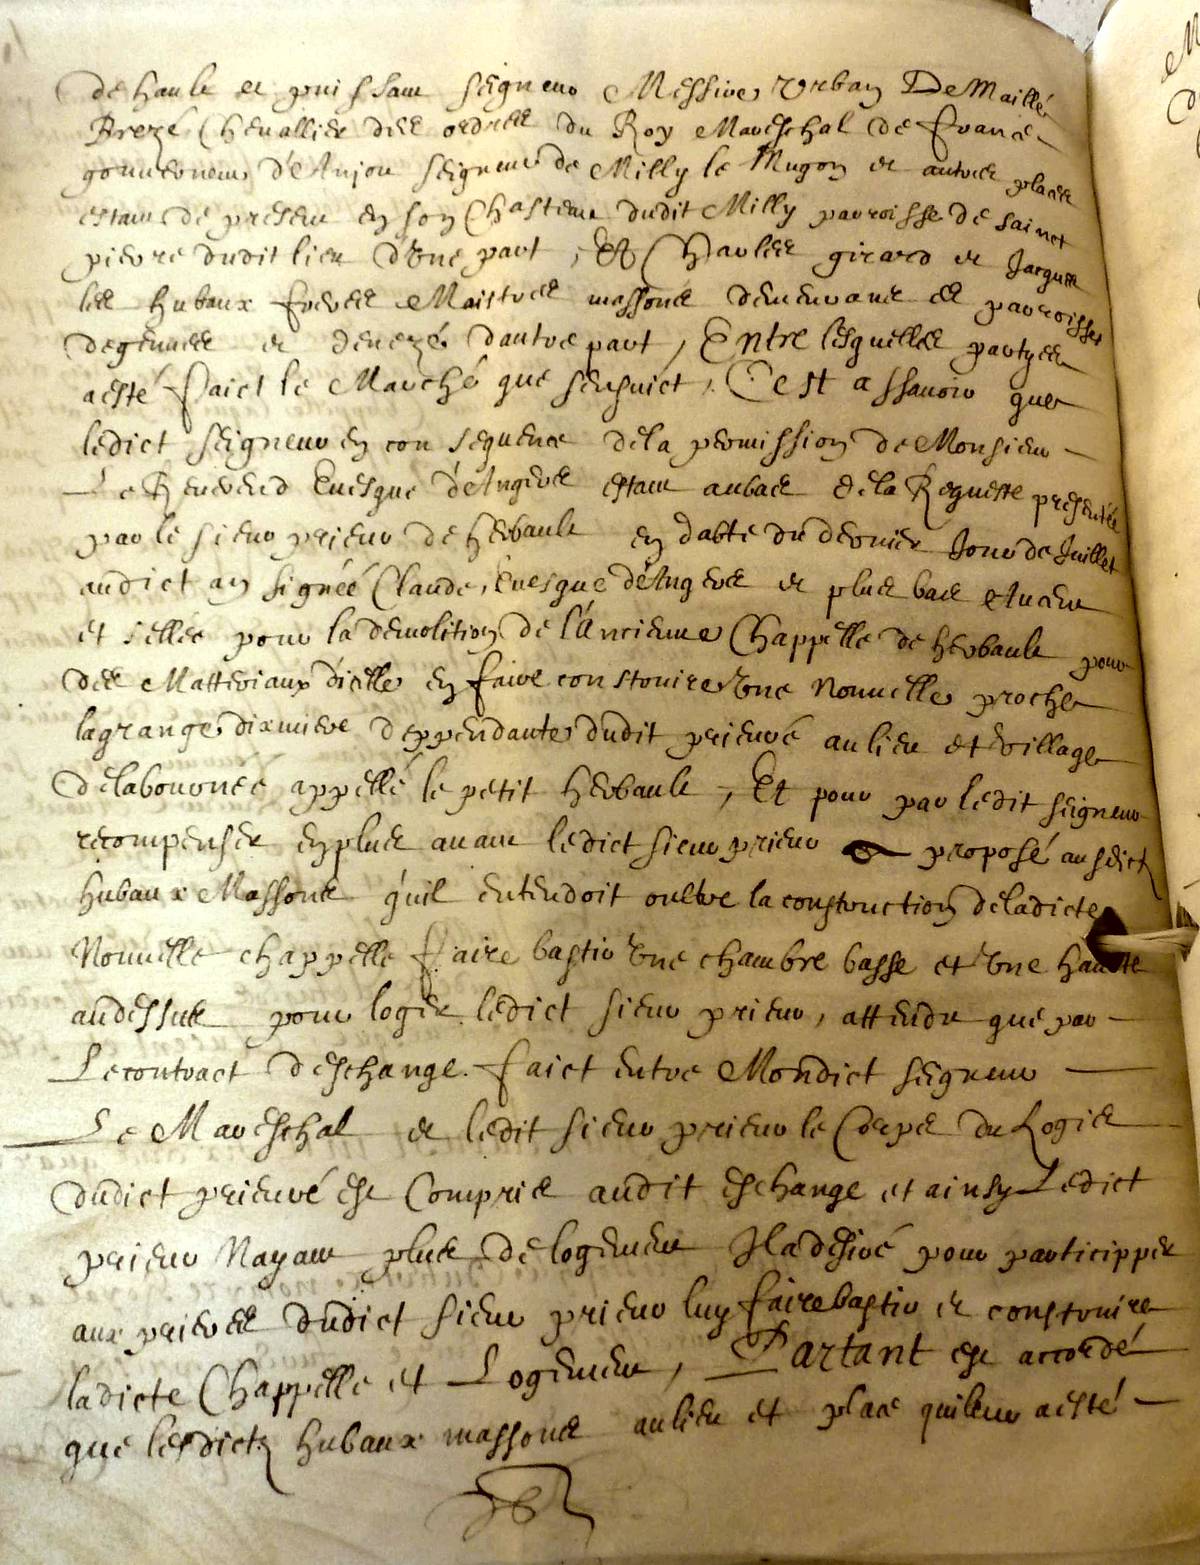 de hault et puissant seigneur Messire Urban De Maillé
Brezé Chevallier des ordres du Roy Mareschal de France
gouverneur d'Anjou seigneur de Milly le Mugon et autres places
estant de present en son Chasteau dudit Milly parroisse de sainct
pierre dudit lieu d'Une part, Et Charles girard et Jacques
les hubaux freres Maistres massons demeurans es parroisses
degennes et denezé dautre part, Entre lesquelles partyes
aesté faict le Marché que sensuict, C'est assavoir que
ledict seigneur en consequence dela permission de Monsieur
Le Reverend Evesque d'Angers estant aubas dela Requeste presentée
par le sieur prieur de herbault en dabte du dernier Jour de Juillet
audict an signée Claude, evesque d'Angers et plus bas
et sellée pour la demolition de l'Ancienne Chappelle de herbault pour
des Matteriaux d'icelle en faire construire Une Nouvelle proche
lagrange dixmere deppendante dudit prieuré au lieu et village
delabournée appellé le petit herbault, Et pour par ledit seigneur
recompenser enplus avant ledict sieur prieur a proposé ausdictz
hubaux Massons qu'il entendoit oultre la construction deladicte
Nouvelle chappelle faire bastir Une chambre basse et Une haulte
audessus pour loger ledict sieur prieur, attendu que par
Lecontract deschange faict entre Mondict seigneur
Le Mareschal et ledit sieur prieur le Corps du Logis
dudict prieuré est Compris audit eschange et ainsy Ledict
prieur Nayant plus de logement Iladesiré pour participper
aux prieres dudict sieur prieur luy fairebastir et construire
ladicte Chappelle et Logement, Partant est accordé
que lesdictz hubaux massons aulieu et place quileur aesté